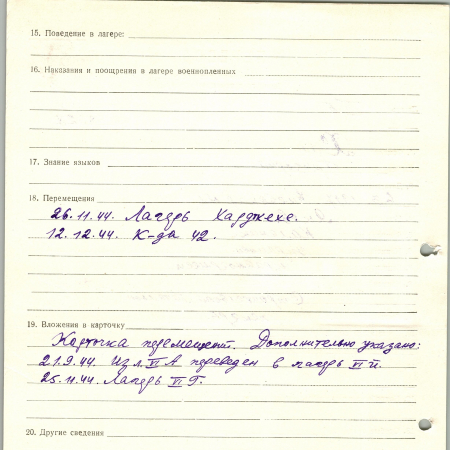 15. Поведение в лагере:
16. Наказания и поощрения в лагере военнопленных
17. Знание языков
18. Перемещения
26.11.44. Лагерь Харджехе.
12.12.44. К-да 42.
19. Вложения в карточку
Карточка перемещений. Дополнительно указано:
21.9.44. Из л. VI А переведен в лагерь VI й.
25.11.44. Лагерь VI Г.
20. Другие сведения